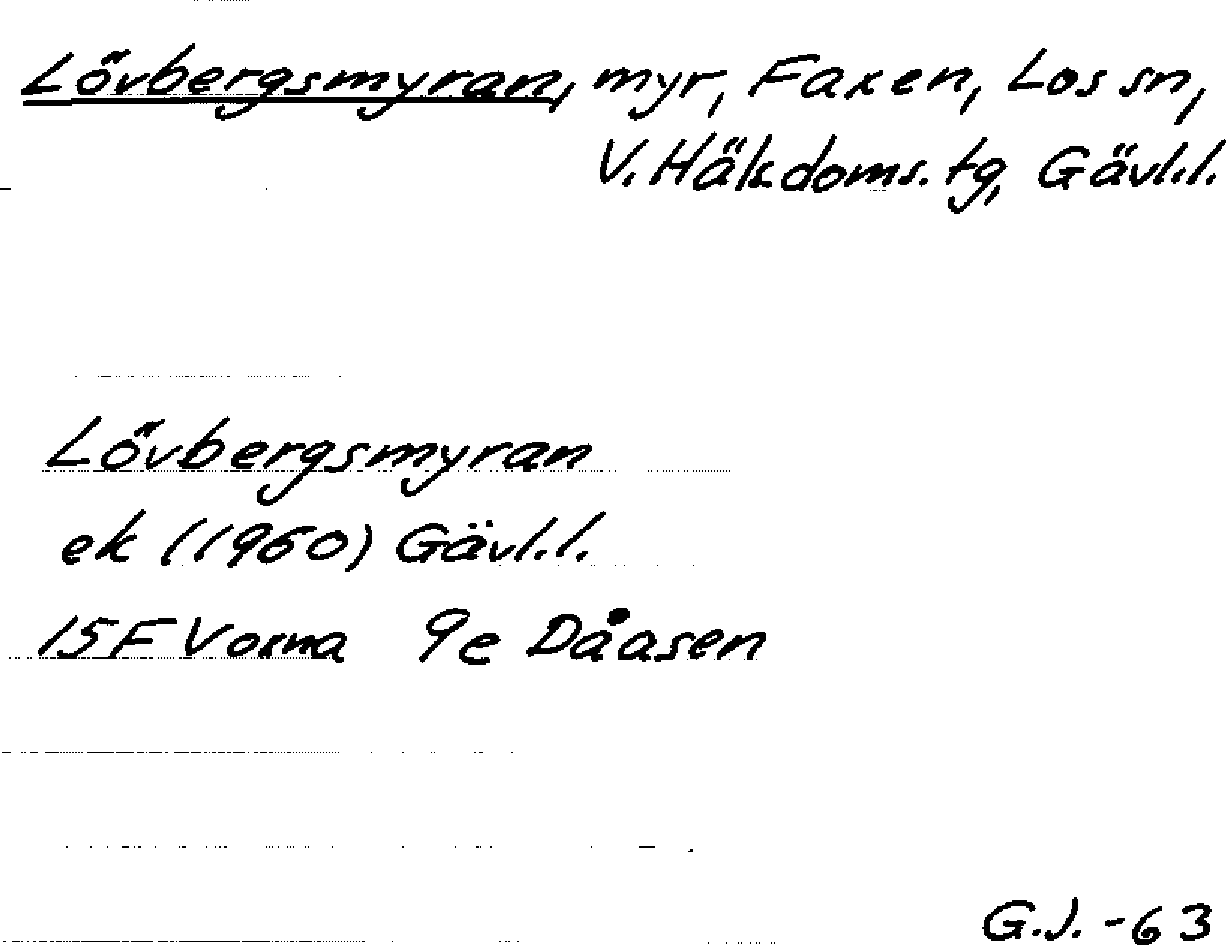 Lövbergsmyran, myr, Faxen, Los sn,
V. Hälsdoms. tg, Gävl.l.
Lövbergsmyran
ek (1960) Gävl.l.
15F Voxna 9e Dåasen
G.J. -63